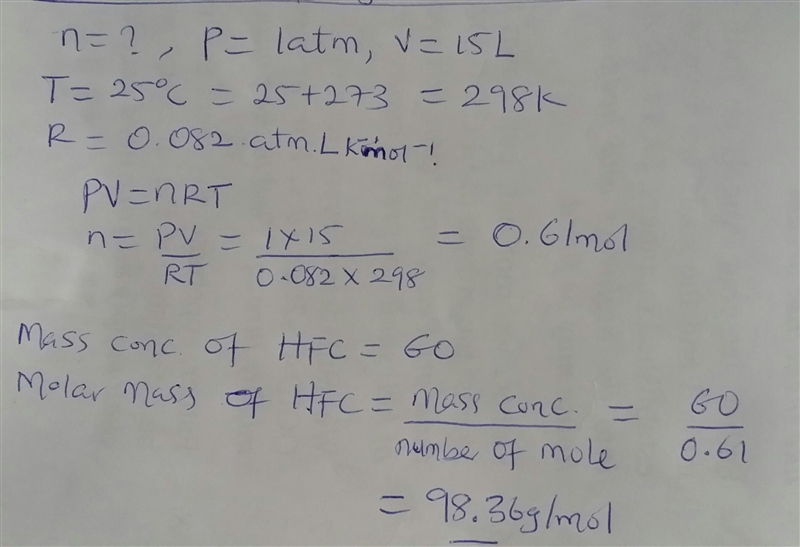 n = ? , P = 1atm, V = 15L
T = 25°C = 25+273 = 298K
R = 0.082 atm.L K⁻¹mol⁻¹
PV = nRT
n = PV/RT = 1 X 15/0.082 X 298 = 0.61mol
Mass conc. of HFC = 60
Molar mass of HFC = mass conc./number of mole = 60/0.61
= 98.36g/mol